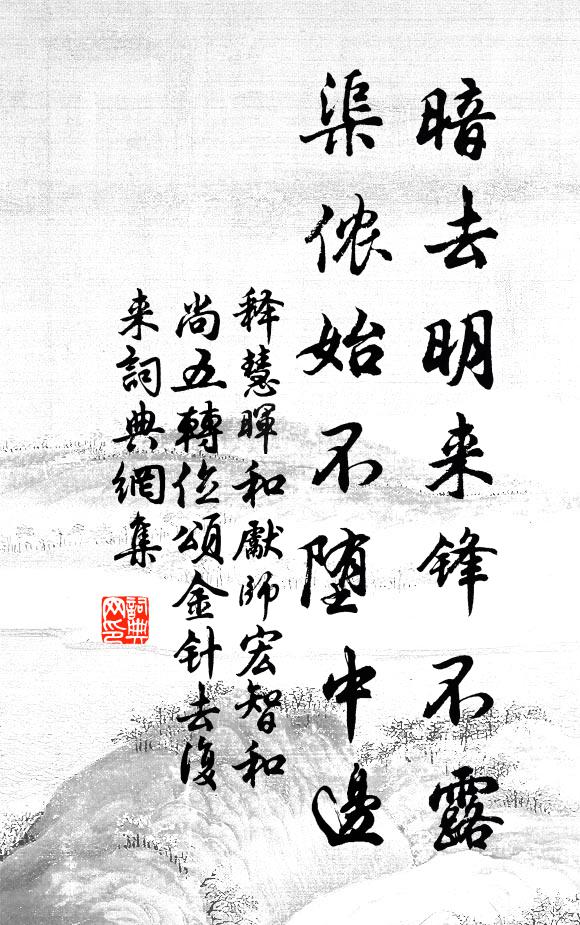 暗去明来锋不露
渠侬始不堕中邊
释慧暉和獻師宏智和
尚五轉位頌金针去復
来詞典網集
詞典网印